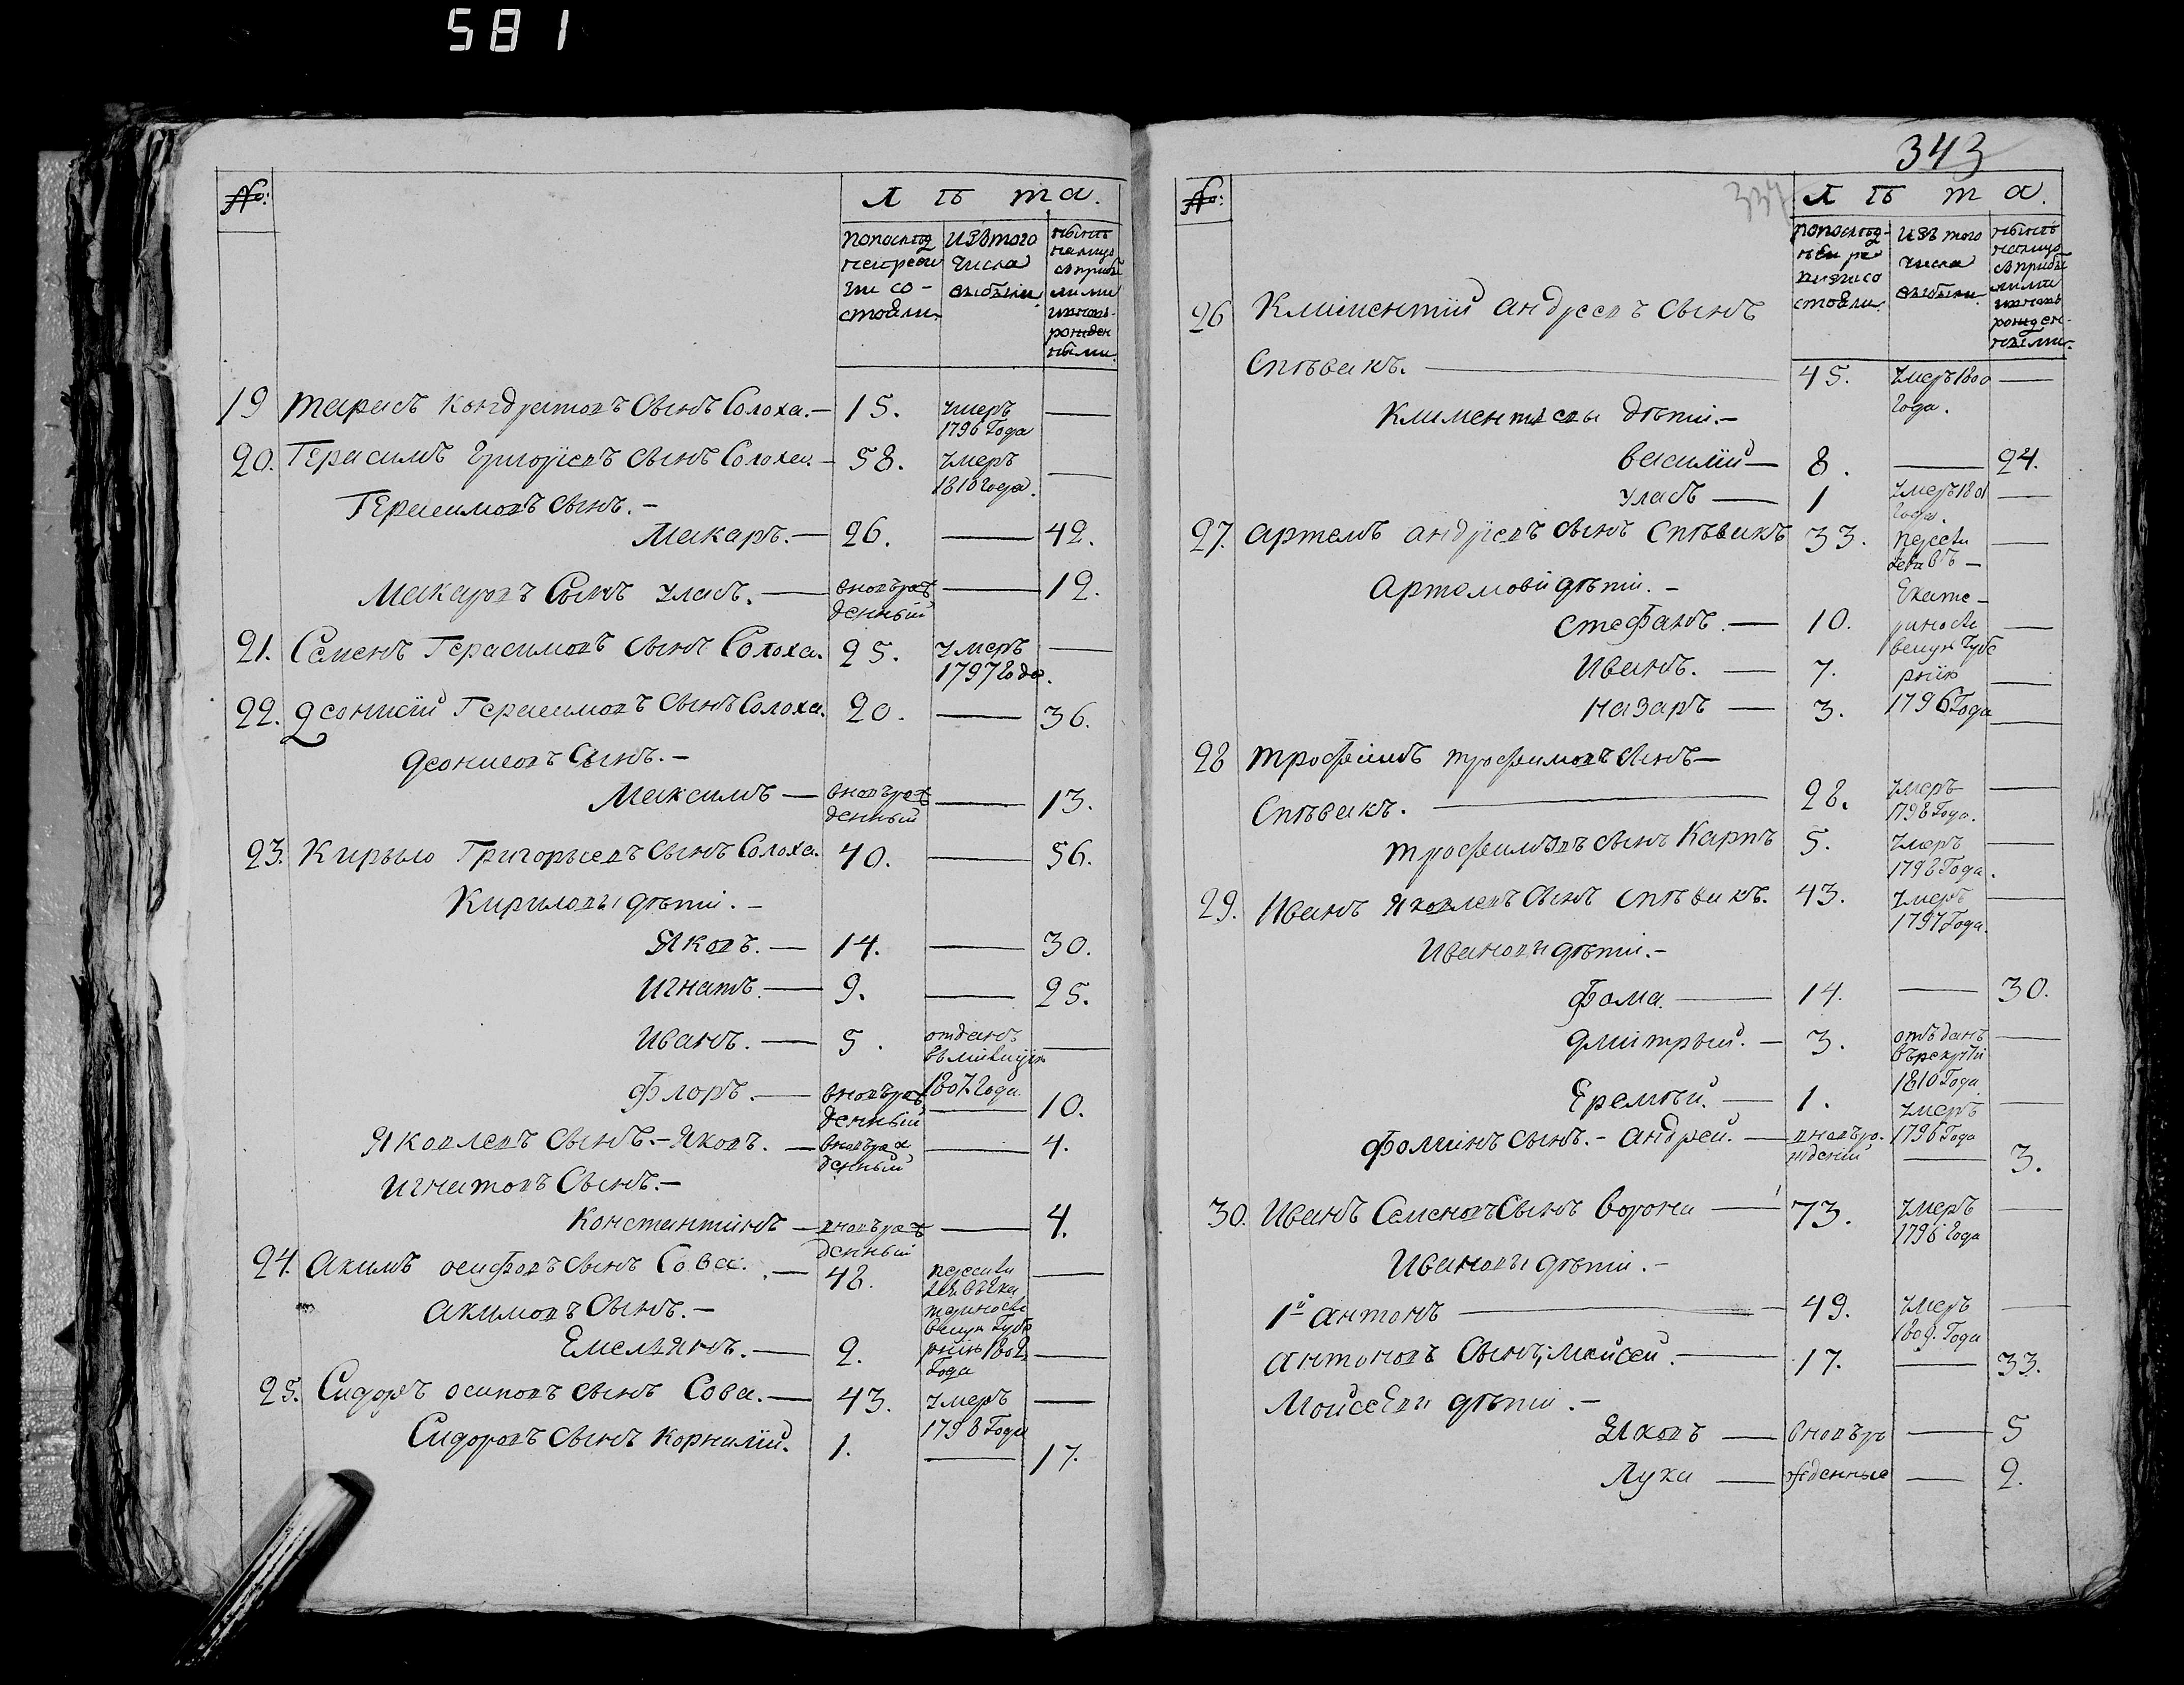 581
№:
Л ѣ т а.
попослѣд
ней реви
зіи со-
стояли.
изътого
числа
выбыли.
нынѣ
налицо
съприбы
лыми
иновь
рожден
ными.
19 Тарасъ Кондратовъ Сынъ Солоха.— 15. умеръ —
1796 Года
20. Герасимъ Григорьевъ Сынъ Солоха.— 58. умеръ —
1810 года.
Герасимовъ Сынъ.—
Макаръ.— 26. — 42.
Макаровъ Сынъ Уласъ.— вновърож — 12.
денный
21. Семенъ Герасимовъ Сынъ Солоха. 25. умеръ —
1797 Года.
22. Деонисій Герасимовъ Сынъ Солоха. 20. — 36.
Деонисовъ Сынъ.—
Максимъ — вновърож — 13.
денный
23. Кирыло Григорьевъ Сынъ Солоха. 40. — 56.
Кириловы дѣти.—
Яковъ.— 14. — 30.
Игнатъ.— 9. — 25.
Иванъ.— 5. отданъ —
вьмилицію
1807 Года
Флоръ.— вновърож — 10.
денный
Яковлевъ Сынъ.— Яковъ.— вновърож — 4.
денный
Игнатовъ Сынъ.—
Константинъ — вновърож — 4.
денный
24. Акимъ осифовъ Сынъ Сова.— 48. пересели —
Акимовъ Сынъ.— теринославскую Губе
Емельянъ.— 2. рнію 1802 —
Года
25. Сидоръ осиповъ Сынъ Сова.— 43. умеръ —
1798 Года
Сидоровъ Сынъ Корнилій. 1. — 17.
343
337
№:
Л ѣ т а.
попослѣд-
ней ре
визіи со
стояли.
изъ того
числа
выбыли.
нынѣ
налицо
съприбы
лыми
иновь
рожден-
ными.
26 Климентій Андреевъ Сынъ
Спѣвакъ.— 45. умеръ 1800 —
Года.
Климентьевы дѣти.—
Василій — 8. — 24.
Уласъ — 1 умеръ 1801 —
Года.
27. Артемъ Андреевъ Сынъ Спѣвакъ 33. пересе —
ленъ въ —
Артемовы дѣти.— Екате-
Стефанъ.— 10. ринославскую Губе —
Иванъ.— 7. рнію —
Назаръ — 3. 1796 Года —
28 Трофимъ Трофимовъ Сынъ —
Спѣвакъ.— 28. умеръ —
1798 Года.
Трофимовъ Сынъ Карпъ 5. умеръ —
1798 Года.
29. Иванъ Яковлевъ Сынъ Спѣвакъ. 43. умеръ —
1797 Года.
Ивановы дѣти.—
Фома.— 14. — 30.
Дмитрый.— 3. отъданъ —
върекруты
1810 Года
Еремѣй.— 1. умеръ —
1796 Года
Фоминъ Сынъ.— Андрей.— вновъро- — 3.
жденій
30. Иванъ Семеновъ Сынъ Ворона — 73. умеръ —
1798 Года
Ивановы дѣти.—
1й Антонъ — 49. умеръ —
1809. Года
Антоновъ Сынъ, Мойсей.— 17. — 33.
Мойсеевы дѣти.—
Яковъ — вновъро — 5
Лука — жденные — 2.